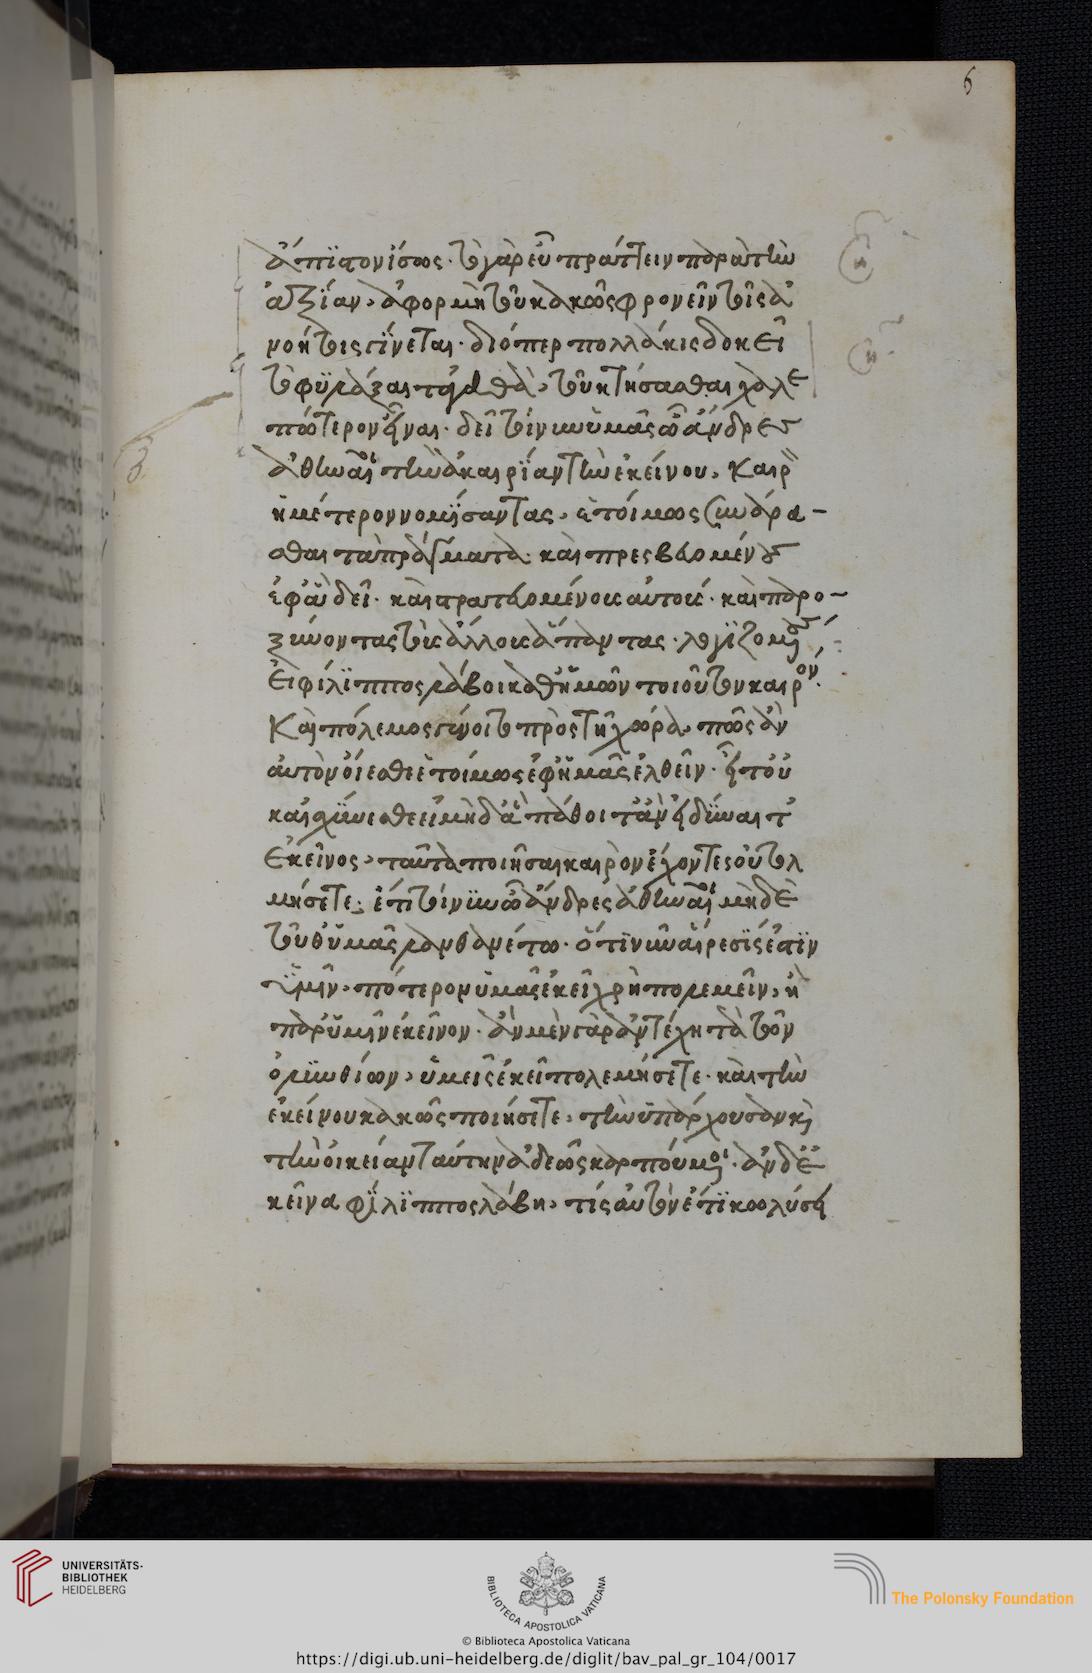 6
ἄπιστον ἴσως· τὸ γὰρ εὖ πράττειν παρὰ τὴν
ἀξίαν, ἀφορμὴ τοῦ κακῶς φρονεῖν τοῖς ἀ
νοήτοις γίνεται· διόπερ πολλάκις δοκεῖ
τὸ φυλάξαι τἀγαθὰ, τοῦ κτήσασθαι χαλε
πώτερον εἶναι· δεῖ τοίνυν ὑμᾶς ὦ ἄνδρες
ἀθηναῖοι τὴν ἀκαιρίαν τὴν ἐκείνου, καιρὸν
ἡμέτερον νομίσαντας, ἑτοίμως συνάρα-
σθαι τὰ πράγματα· καὶ πρεσβευομένους
ἐφ' ἃ δεῖ· καὶ στρατευομένους αὐτοὺς· καὶ παρο-
ξύνοντας τοὺς ἄλλους ἅπαντας· λογιζομένους
εἰ φίλιππος λάβοι καθ' ἡμῶν τοιοῦτον καιρόν·
καὶ πόλεμος γένοιτο πρὸς τῇ χώρᾳ· πῶς ἂν
αὐτὸν οἴεσθε ἑτοίμως ἐφ' ἡμᾶς ἐλθεῖν· εἶτ' οὐ
καὶ αἰσχύνεσθε εἰ μὴ δ' ἃ πάθοι τ' ἂν εἰ δύναιτ'
ἐκεῖνος, ταῦτα ποιῆσαι καιρὸν ἔχοντες οὐ τολ
μήσετε; ἔτι τοίνυν ὦ ἄνδρες ἀθηναῖοι μηδὲ
τοῦθ' ὑμᾶς λανθανέτω· ὅτι νῦν αἵρεσίς ἐστιν
ὑμῖν, πότερον ὑμᾶς ἐκεῖ χρὴ πολεμεῖν, ἢ
παρ' ὑμῖν ἐκεῖνον· ἂν μὲν γὰρ ἀντέχῃ τὰ τῶν
ὀλυνθίων, ὑμεῖς ἐκεῖ πολεμήσετε· καὶ τὴν
ἐκείνου κακῶς ποιήσετε, τὴν ὑπάρχουσαν καὶ
τὴν οἰκείαν ταύτην ἀδεῶς καρπούμενοι· ἂν δ' ἐ
κεῖνα φίλιππος λάβῃ, τίς αὐτὸν ἔτι κωλύσει
UNIVERSITÄTS-
BIBLIOTHEK
HEIDELBERG
BIBLIOTECA APOSTOLICA VATICANA
The Polonsky Foundation
© Biblioteca Apostolica Vaticana
https://digi.ub.uni-heidelberg.de/diglit/bav_pal_gr_104/0017